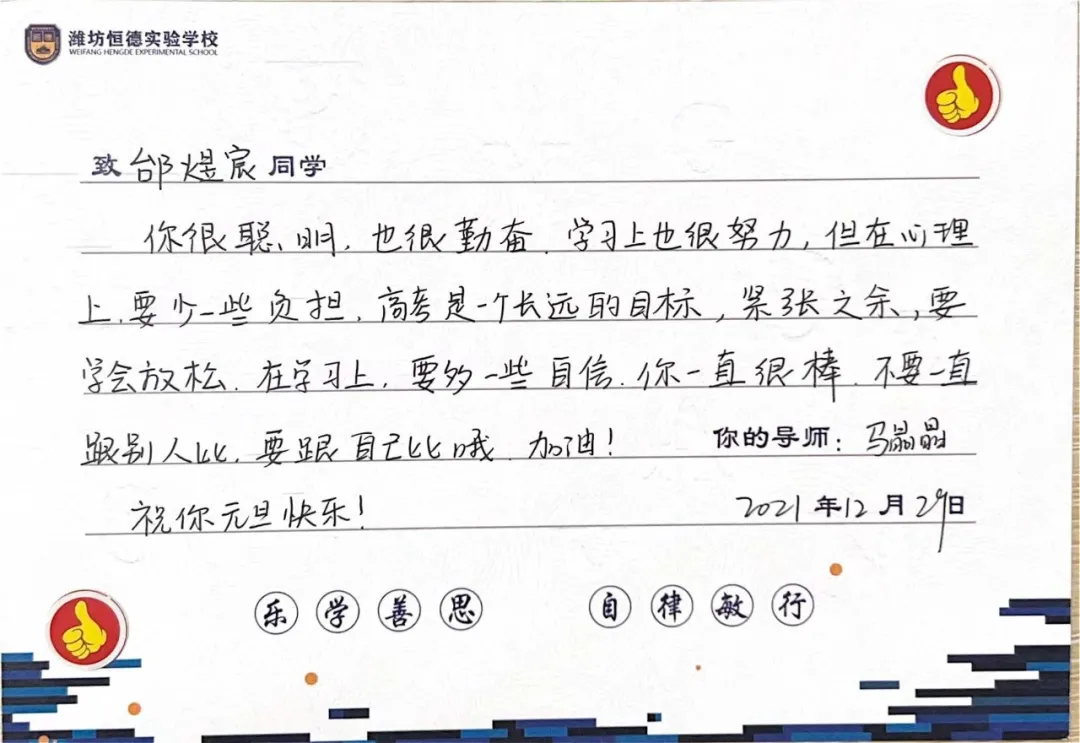 潍坊恒德实验学校
WEIFANG HENGDE EXPERIMENTAL SCHOOL
致邰煜宸同学
你很聪明,也很勤奋,学习上也很努力,但在心理
上,要少一些负担,高考是一个长远的目标,紧张之余,要
学会放松.在学习上,要多一些自信.你一直很棒.不要一直
跟别人比,要跟自己比哦.加油!
你的导师:马晶晶
祝你元旦快乐!
2021年12月29日
乐学善思
自律敏行